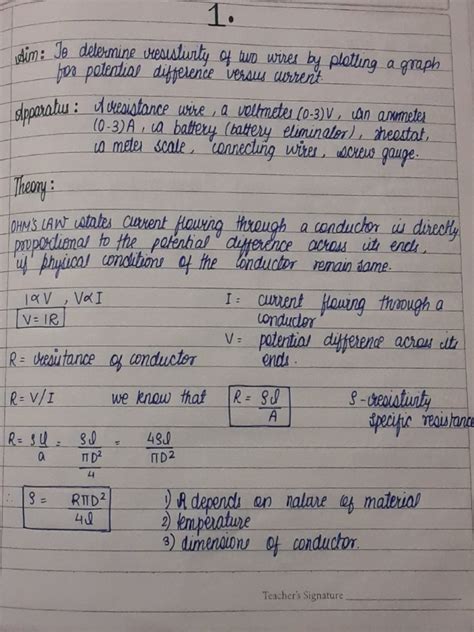 1.
Aim: To determine resistivity of two wires by plotting a graph
for potential difference versus current.
Apparatus: A resistance wire, a voltmeter (0-3)V, an ammeter
(0-3)A, a battery (battery eliminator), rheostat,
a meter scale, connecting wires, screw gauge.
Theory:
OHM'S LAW states current flowing through a conductor is directly
proportional to the potential difference across its ends,
if physical conditions of the conductor remain same.
I∝V, V∝I I = current flowing through a
V=IR conductor
V = potential difference across its
R = resistance of conductor ends.
R = V/I we know that R = ρl/A ρ-resistivity
specific resistance
R = ρl/a = ρl/(πD²/4) = 4ρl/πD²
∴ ρ = RπD²/4l 1) R depends on nature of material
2) temperature
3) dimensions of conductor.
Teacher's Signature